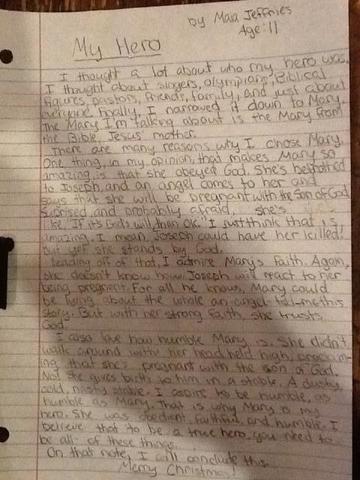 by Maia Jeffries
Age: 11
My Hero
I thought a lot about who my hero was.
I thought about singers, olympians, Biblical
figures, pastors, friends, family, and just about
everyone. Finally, I narrowed it down to Mary.
The Mary I'm talking about is the Mary from
the Bible, Jesus' mother.
There are many reasons why I chose Mary.
One thing, in my opinion, that makes Mary so
amazing is that she obeyed God. She's betrothed
to Joseph, and an angel comes to her and
says that she will be pregnant with the Son of God.
Suprised, and probably afraid, she's
like, If it's God's will then OK. I just think that is
amazing. I mean, Joseph could have her killed!
But yet she stands by God.
Leading off of that, I admire Mary's faith. Again,
she doesn't know how Joseph will react to her
being pregnant. For all he knows, Mary could
be lying about the whole an-angel-told-me-this
story. But with her strong faith, she trusts
God.
I also love how humble Mary is. She didn't
walk around with her head held high, proclaim-
ing that she's pregnant with the son of God.
No! She gives birth to him in a stable. A dusty,
cold, stable. I aspire to be humble, as
humble as Mary. That is why Mary is my
hero. She was obedient, faithful, and humble. I
believe that to be a true hero, you need to
be all of these things.
On that note, I will conclude this.
Merry Christmas!